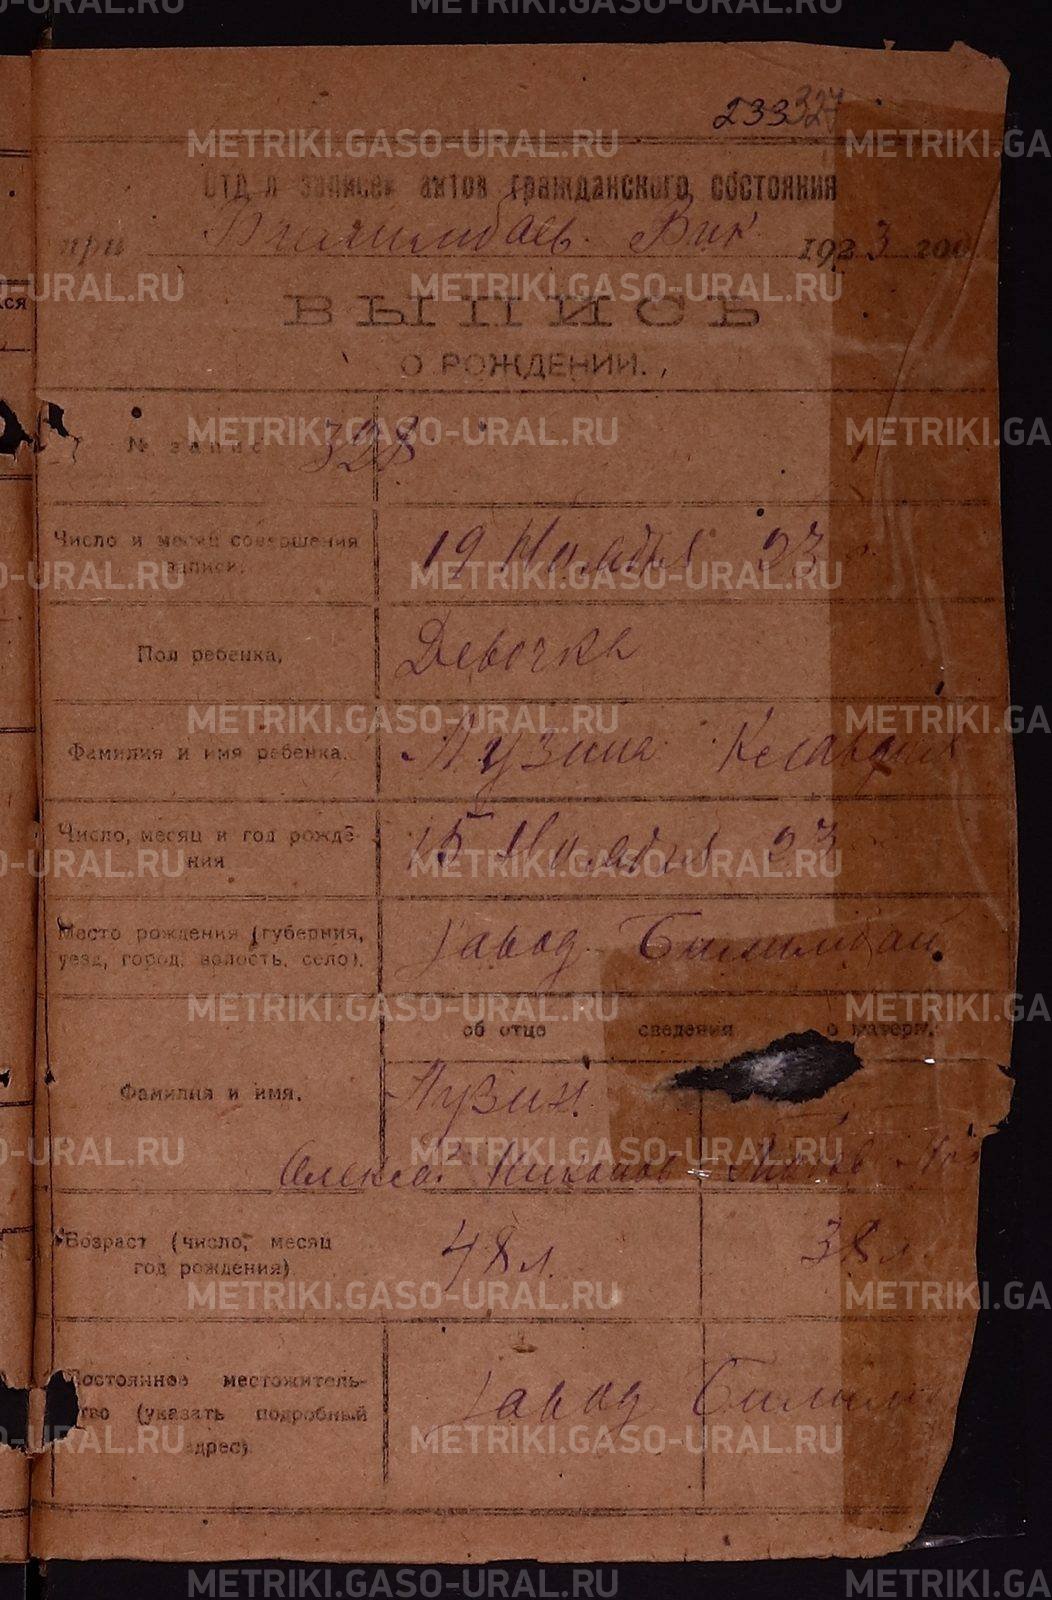 METRIKI.GASO-URAL.RU
233 327
Отд л записей актов гражданского состояния
при Билимбаев. Вик 1923 год
ВЫПИСЬ
О РОЖДЕНИИ.
№ запис 328
Число и месяц совершения записи. 19 Ноября 23
Пол ребенка. Девочка
Фамилия и имя ребенка. Лузина Клавдия
Число, месяц и год рожде-
ния 15 Ноября 23
Место рождения (губерния,
уезд, город, волость, село). Завод Билимбай
об отце сведения о матери.
Фамилия и имя. Лузин
Алексей Никонов
Возраст (число, месяц
год рождения) 48 л. 38 л.
Постоянное местожитель-
ство (указать подробный
адрес) Завод Билим